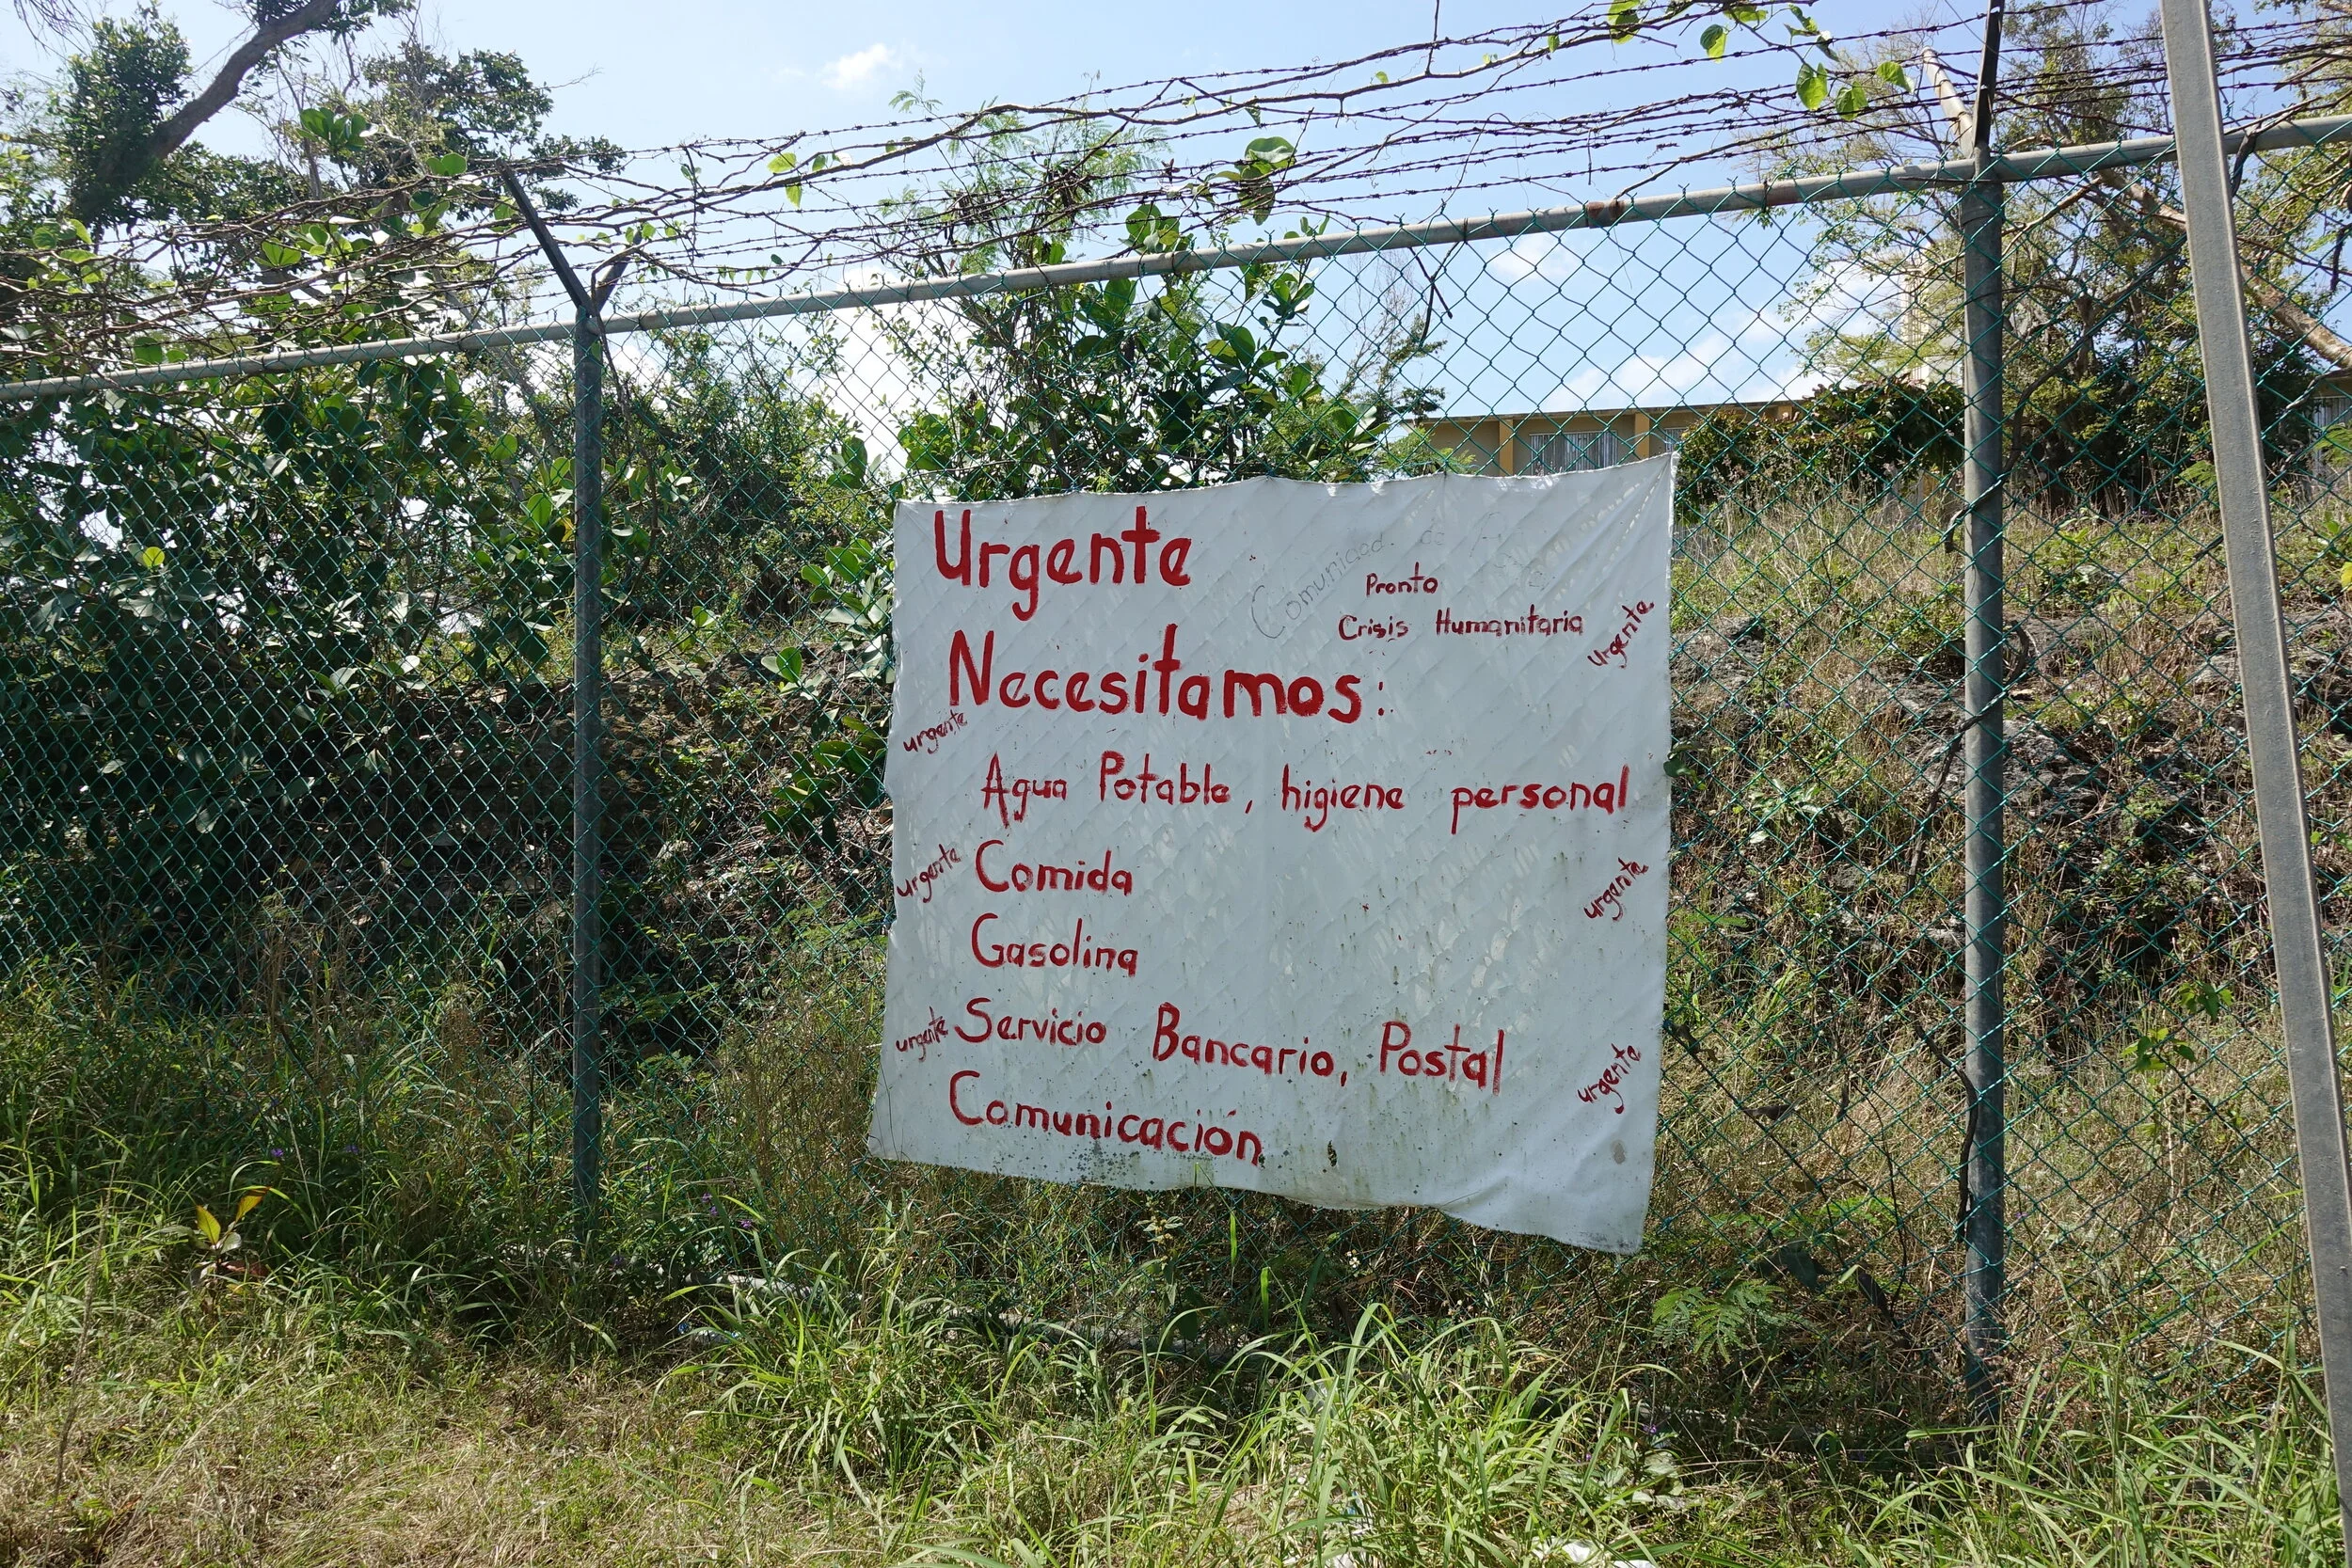 Urgente
Comunidad de
Pronto
Crisis Humanitaria
urgente
Necesitamos:
urgente
Agua Potable, higiene personal
urgente
Comida
urgente
Gasolina
urgente
Servicio Bancario, Postal
urgente
Comunicación